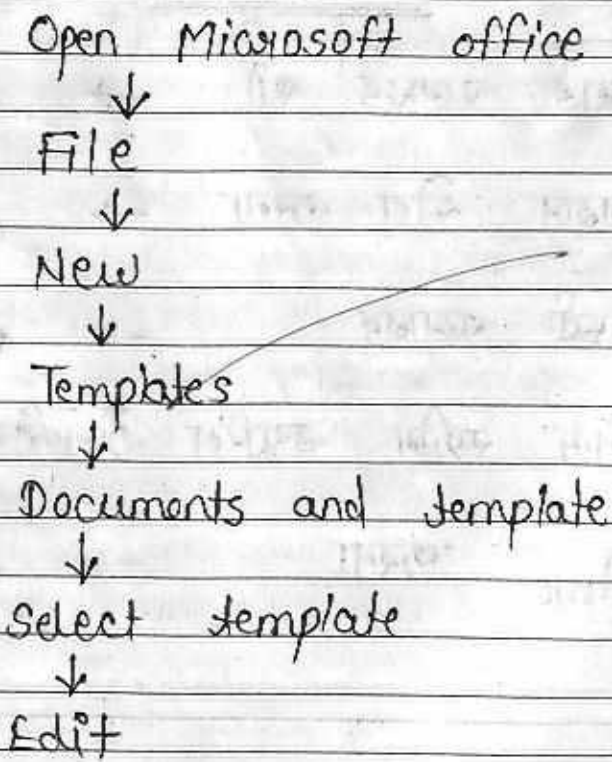 Open Microsoft office
↓
File
↓
New
↓
Templates
↓
Documents and template
↓
Select template
↓
Edit